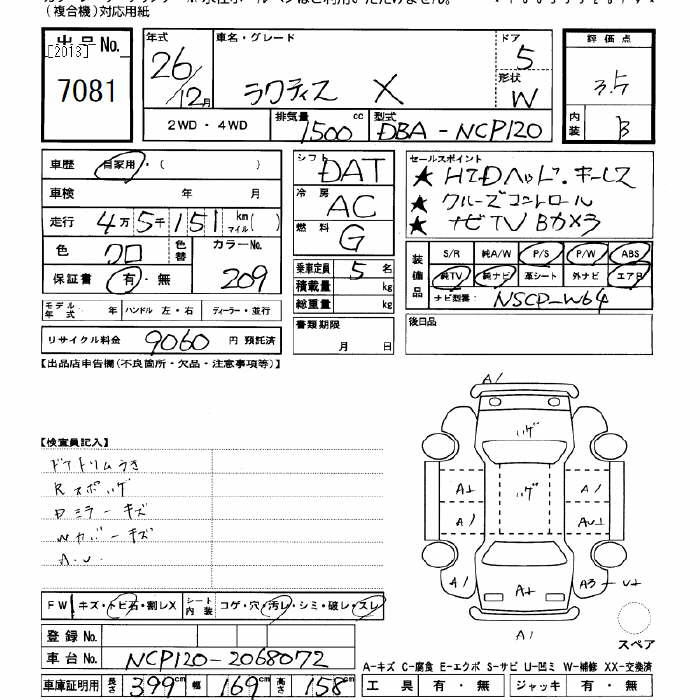 (複合機)対応用紙
出品No.
[2013]
7081
年式 車名・グレード ドア 評価点
26/12月 ラクティス X 5 3.5
形状 W
2WD・4WD 排気量 1500 cc 型式 DBA-NCP120 内装 B
車歴 自家用・( )
車検 年 月
走行 4万5千151 km マイル( )
色 クロ 色替 カラーNo. 209
保証書 有・無
モデル年式 年 ハンドル 左・右 ディーラー・並行
リサイクル料金 9060 円 預託済
シフト DAT
冷房 AC
燃料 G
乗車定員 5 名
積載量 kg
総重量 kg
書類期限
月 日
セールスポイント
★ HIDヘッド・キーレス
★ クルーズコントロール
★ ナビTV Bカメラ
装備品 S/R 純A/W P/S P/W ABS
純TV 純ナビ 革シート 外ナビ エアB
ナビ型番 NSCP-W64
後日品
【出品店申告欄(不良箇所・欠品・注意事項等)】
【検査員記入】
ドアトリムうき
Rスポハゲ
Dミラーキズ
Wカバーキズ
A.U.
A1
ハゲ
A1 ハゲ A1
A1 AU1
A1 A1 A3 U1
A1
スペア
FW キズ・トビ石・割レX シート内装 コゲ・穴・汚レ・シミ・破レ・スレ
登録No.
車台No. NCP120-2068072
車庫証明用 長さ 399cm 幅 169cm 高さ 158cm
A-キズ C-腐食 E-エクボ S-サビ U-凹ミ W-補修 XX-交換済
工具 有・無 ジャッキ 有・無